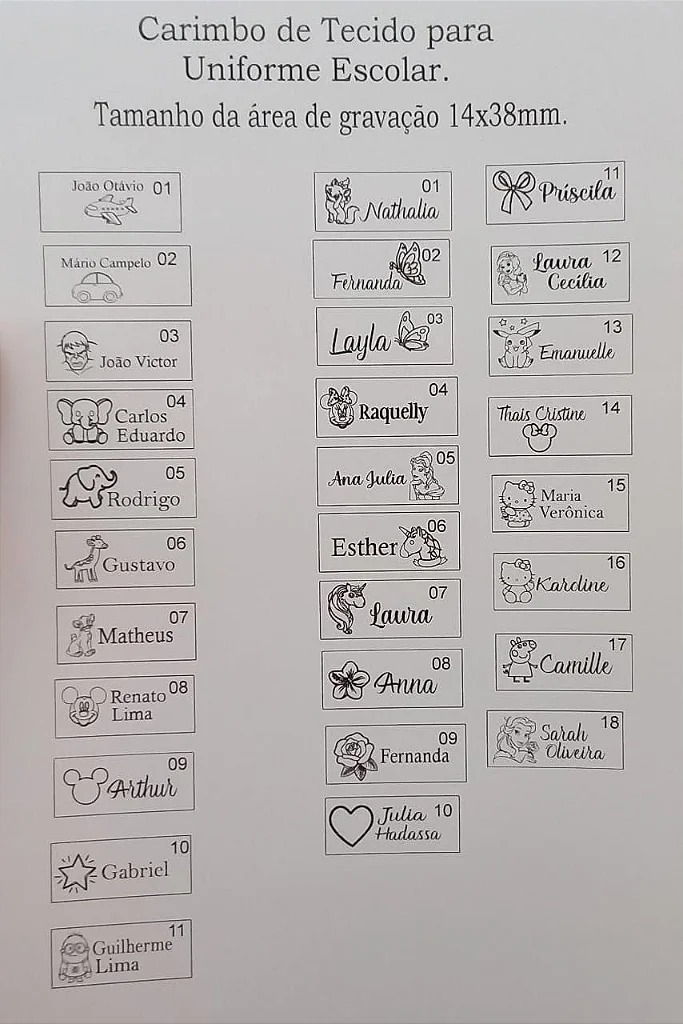 Carimbo de Tecido para
Uniforme Escolar.
Tamanho da área de gravação 14x38mm.
João Otávio 01
Mário Campelo 02
03
João Victor
04
Carlos
Eduardo
05
Rodrigo
06
Gustavo
07
Matheus
08
Renato
Lima
09
Arthur
10
Gabriel
11
Guilherme
Lima
01
Nathalia
02
Fernanda
03
Layla
04
Raquelly
05
Ana Julia
06
Esther
07
Laura
08
Anna
09
Fernanda
Julia 10
Hadassa
11
Príscila
Laura 12
Cecília
13
Emanuelle
Thais Cristine 14
15
Maria
Verônica
16
Karoline
17
Camille
18
Sarah
Oliveira